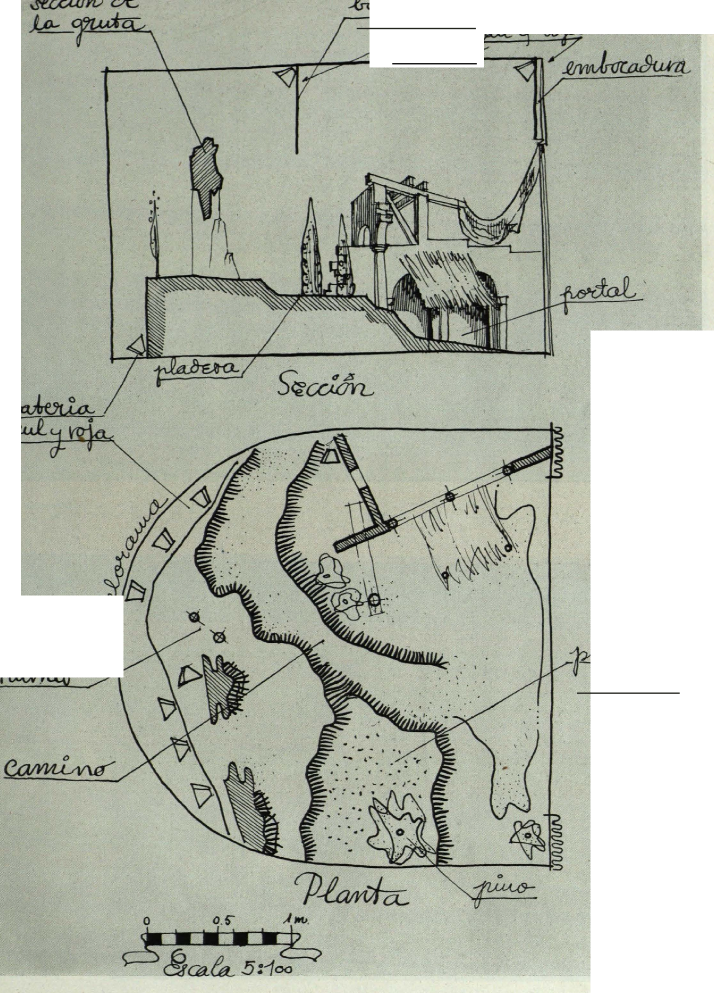 sección de
la gruta
embocadura
portal
pladera
Sección
ateria
ul y roja
lorama
camino
pino
Planta
0 0.5 1 m.
Escala 5:100